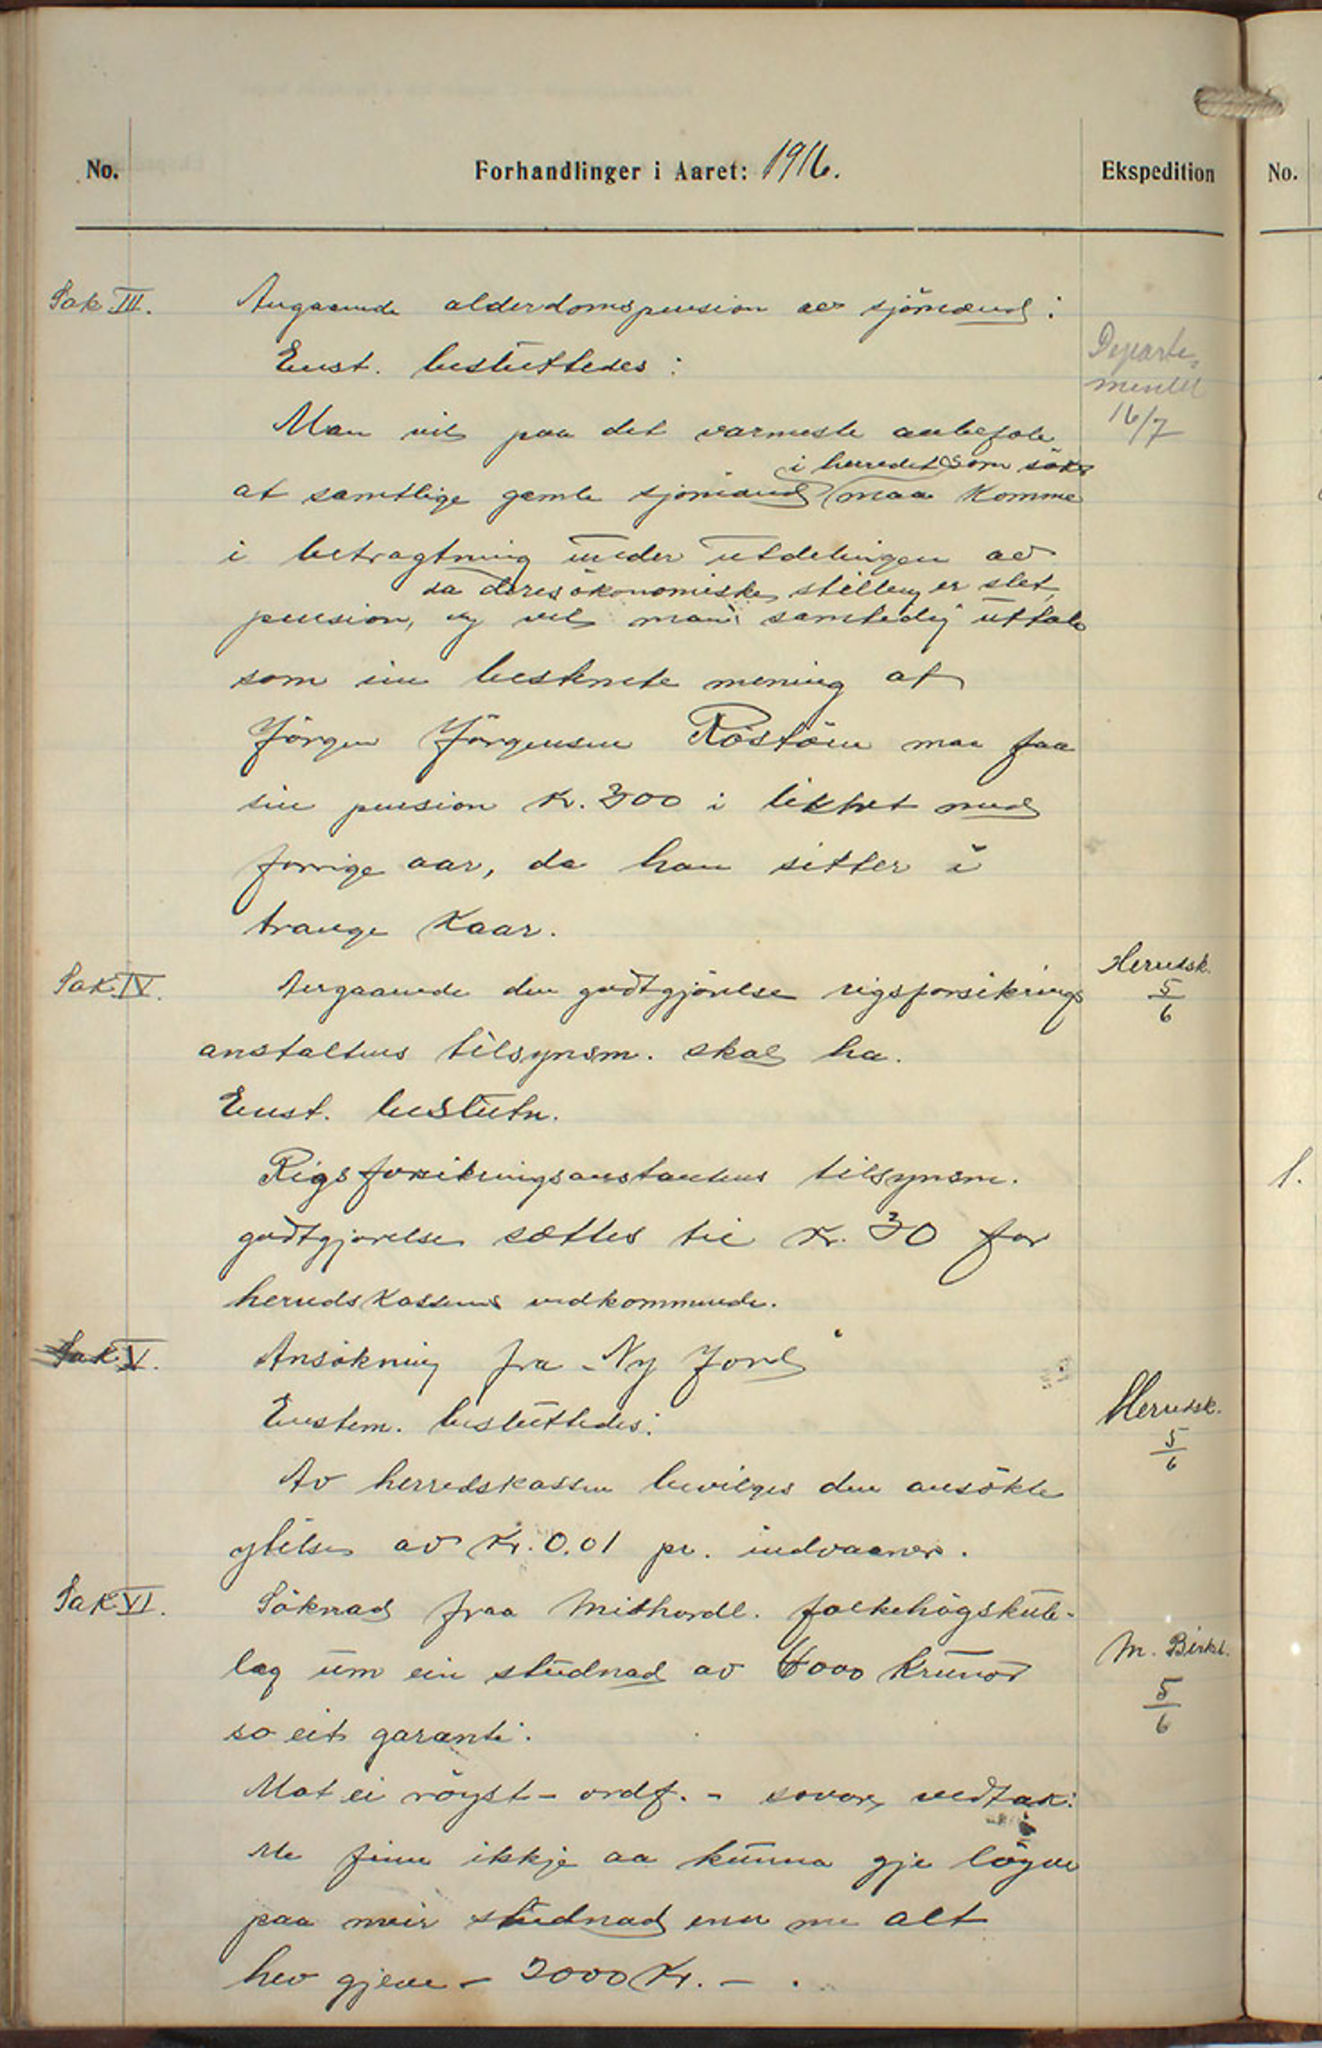 No.
Forhandlinger i Aaret: 1916.
Ekspedition
No.
Sak III.
Angaaende alderdomspension av sjömænd:
Enst. besluttedes:
Departe-
mentet
16/7
Man vil paa det varmeste anbefale
i herredet som söke
at samtlige gamle sjömænd maa komme
i betragtning under utdelingen av
da deres ökonomiske stilling er slet,
pension, og vil man samtidig uttale
som sin bestemte mening at
Jörgen Jörgensen Röstöen maa faa
sin pension Kr. 300 i likhet med
forrige aar, da han sitter i
trange kaar.
Sak IV.
Angaaende den godtgjörelse rigsforsikrings
Herredsk.
5/6
anstaltens tilsynsm. skal ha.
Enst. beslutn.
Rigsforsikringsanstaltens tilsynsm.
godtgjörelse sættes til Kr. 30 for
herredskassens vedkommende.
Sak V.
Ansökning fra "Ny Jord"
Enstem. besluttedes:
Herredsk.
5/6
Av herredskassen bevilges den ansökte
ytelse av Kr. 0.01 pr. indvaaner.
Sak VI.
Söknad fraa Midhordl. folkehögskule-
lag um ein studnad av 6000 krunor
M. Birkel.
5/6
so eit garanti.
Mot ei röyst - ordf. - sovore vedtak:
Me finn ikkje aa kunna gje lögve
paa meir studnad enn me alt
hev gjeve - 2000 Kr. - .
1.